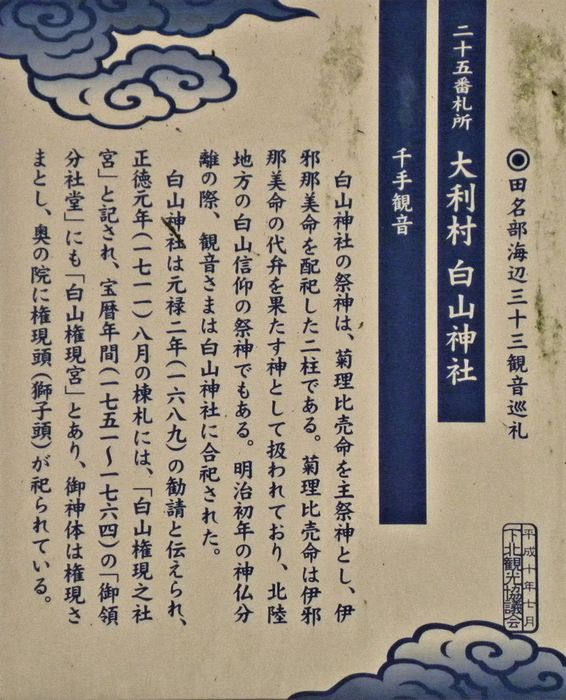 ◉田名部海辺三十三観音巡礼
二十五番札所 大利村 白山神社
千手観音
白山神社の祭神は、菊理比売命を主祭神とし、伊
邪那美命を配祀した二柱である。菊理比売命は伊邪
那美命の代弁を果たす神として扱われており、北陸
地方の白山信仰の祭神でもある。明治初年の神仏分
離の際、観音さまは白山神社に合祀された。
白山神社は元禄二年(一六八九)の勧請と伝えられ、
正徳元年(一七一一)八月の棟札には、「白山権現之社
宮」と記され、宝暦年間(一七五一〜一七六四)の「御領
分社堂」にも「白山権現宮」とあり、御神体は権現さ
まとし、奥の院に権現頭(獅子頭)が祀られている。
平成十年七月
下北観光協議会